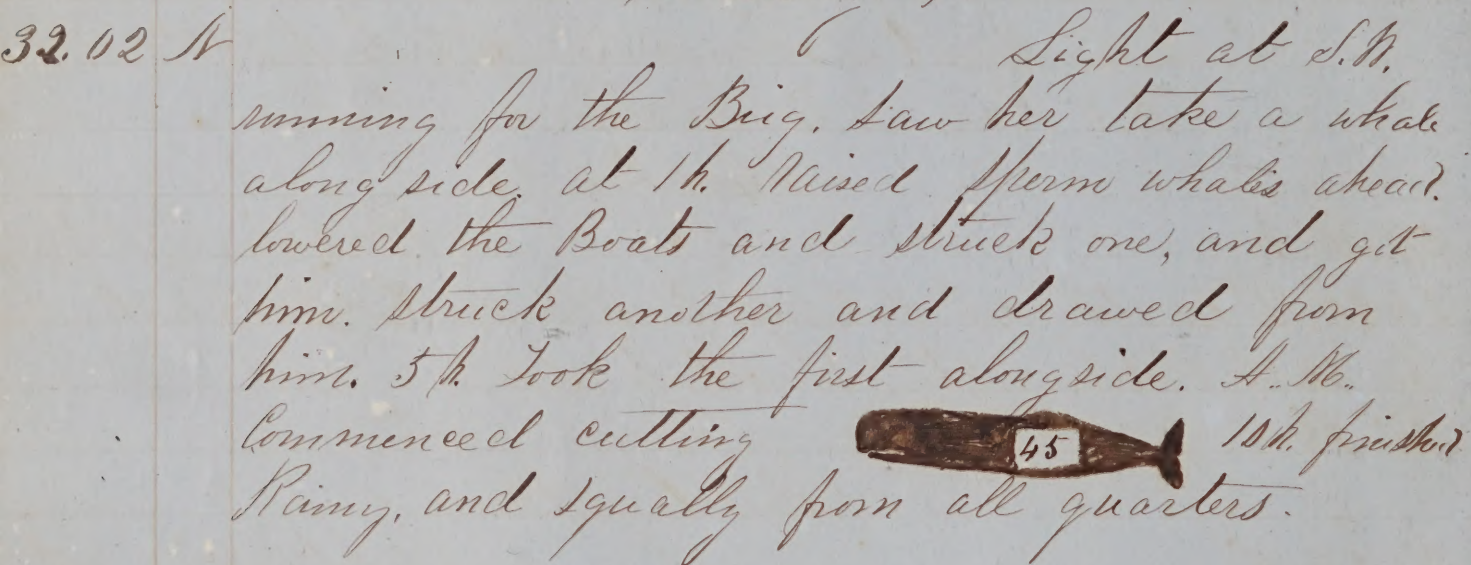 32.02 N Light at S.W.
running for the Brig. Saw her take a whale
along side. at 1 h. Raised Sperm whales ahead.
lowered the Boats and struck one, and got
him. struck another and drawed from
him. 5 h. Took the first alongside. A.M.
Commenced cutting 45 10 h. finished
Rainy, and squally from all quarters.